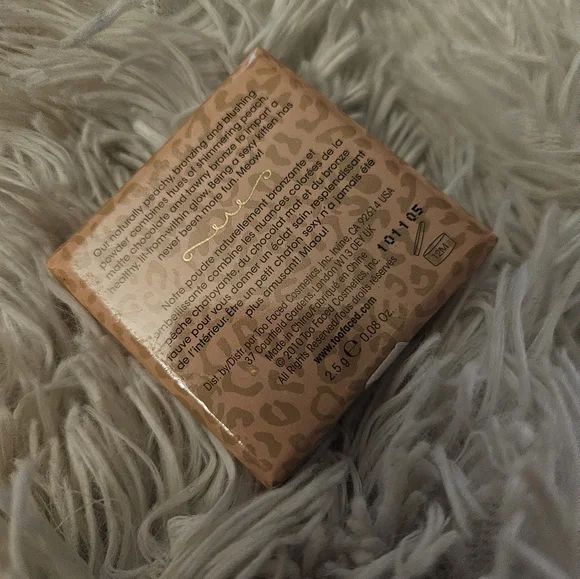 Our naturally peachy bronzing and blushing
powder combines hues of shimmering peach,
matte chocolate and tawny bronze to impart a
healthy, lit-from-within glow. Being a sexy kitten has
never been more fun. Meow!
Notre poudre naturellement bronzante et
embellissante combine les nuances colorées de la
pêche chatoyante, du chocolat mat et du bronze
fauve pour vous donner un éclat sain resplendissant
de l'intérieur. Être un petit chaton sexy n'a jamais été
plus amusant! Miaou!
Dist. by/Distr. par Too Faced Cosmetics, Inc., Irvine, CA 92614 USA
37 Gardens, London W13 UK
Made in China/Fabriqué en Chine
© 2010 Too Faced Cosmetics, Inc.
All Rights Reserved/Tous droits réservés
www.toofaced.com
2.5 g ℮ 0.08 oz.
101105
12M